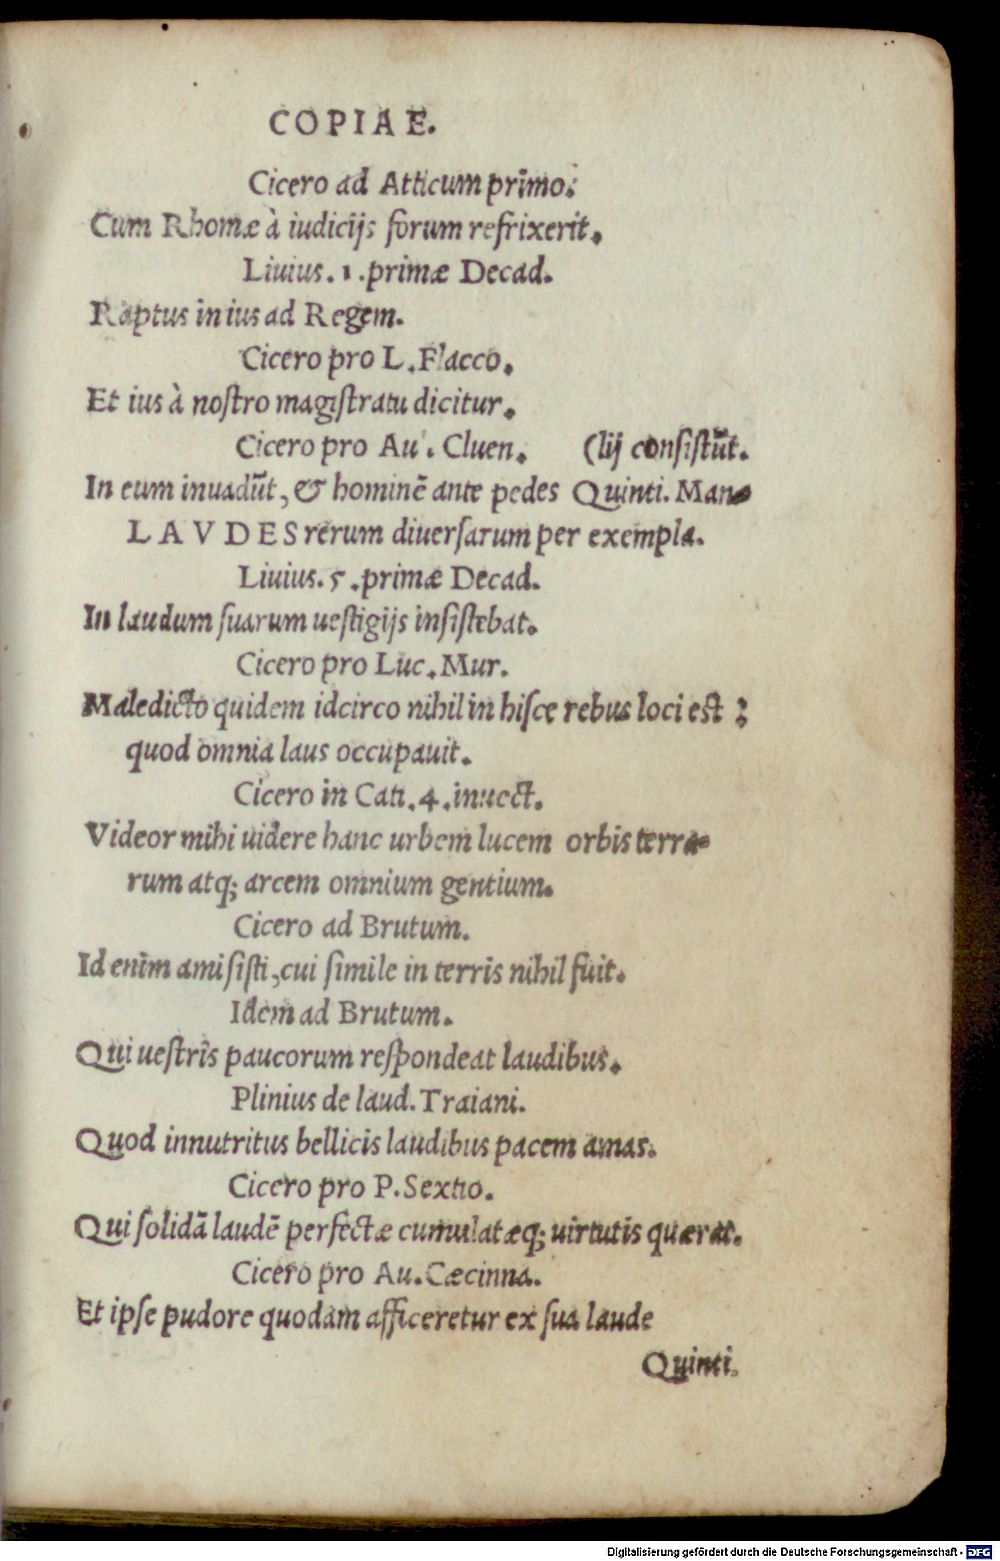 COPIAE.
Cicero ad Atticum primo.
Cum Rhomæ à iudicijs forum refrixerit.
Liuius. 1. primæ Decad.
Raptus in ius ad Regem.
Cicero pro L. Flacco.
Et ius à nostro magistratu dicitur.
Cicero pro Au. Cluen. (lij consistūt.
In eum inuadūt, & hominē ante pedes Quinti. Man-
LAVDES rerum diuersarum per exempla.
Liuius. 5. primæ Decad.
In laudum suarum uestigijs insistebat.
Cicero pro Luc. Mur.
Maledicto quidem idcirco nihil in hisce rebus loci est?
quod omnia laus occupauit.
Cicero in Cati. 4. inuect.
Videor mihi uidere hanc urbem lucem orbis terra-
rum atq; arcem omnium gentium.
Cicero ad Brutum.
Id enim amisisti, cui simile in terris nihil fuit.
Idem ad Brutum.
Qui uestris paucorum respondeat laudibus.
Plinius de laud. Traiani.
Quod innutritus bellicis laudibus pacem amas.
Cicero pro P. Sextio.
Qui solidā laudē perfectæ cumulatæq; uirtutis quærat.
Cicero pro Au. Cæcinna.
Et ipse pudore quodam afficeretur ex sua laude
Quinti.
Digitalisierung gefördert durch die Deutsche Forschungsgemeinschaft - DFG